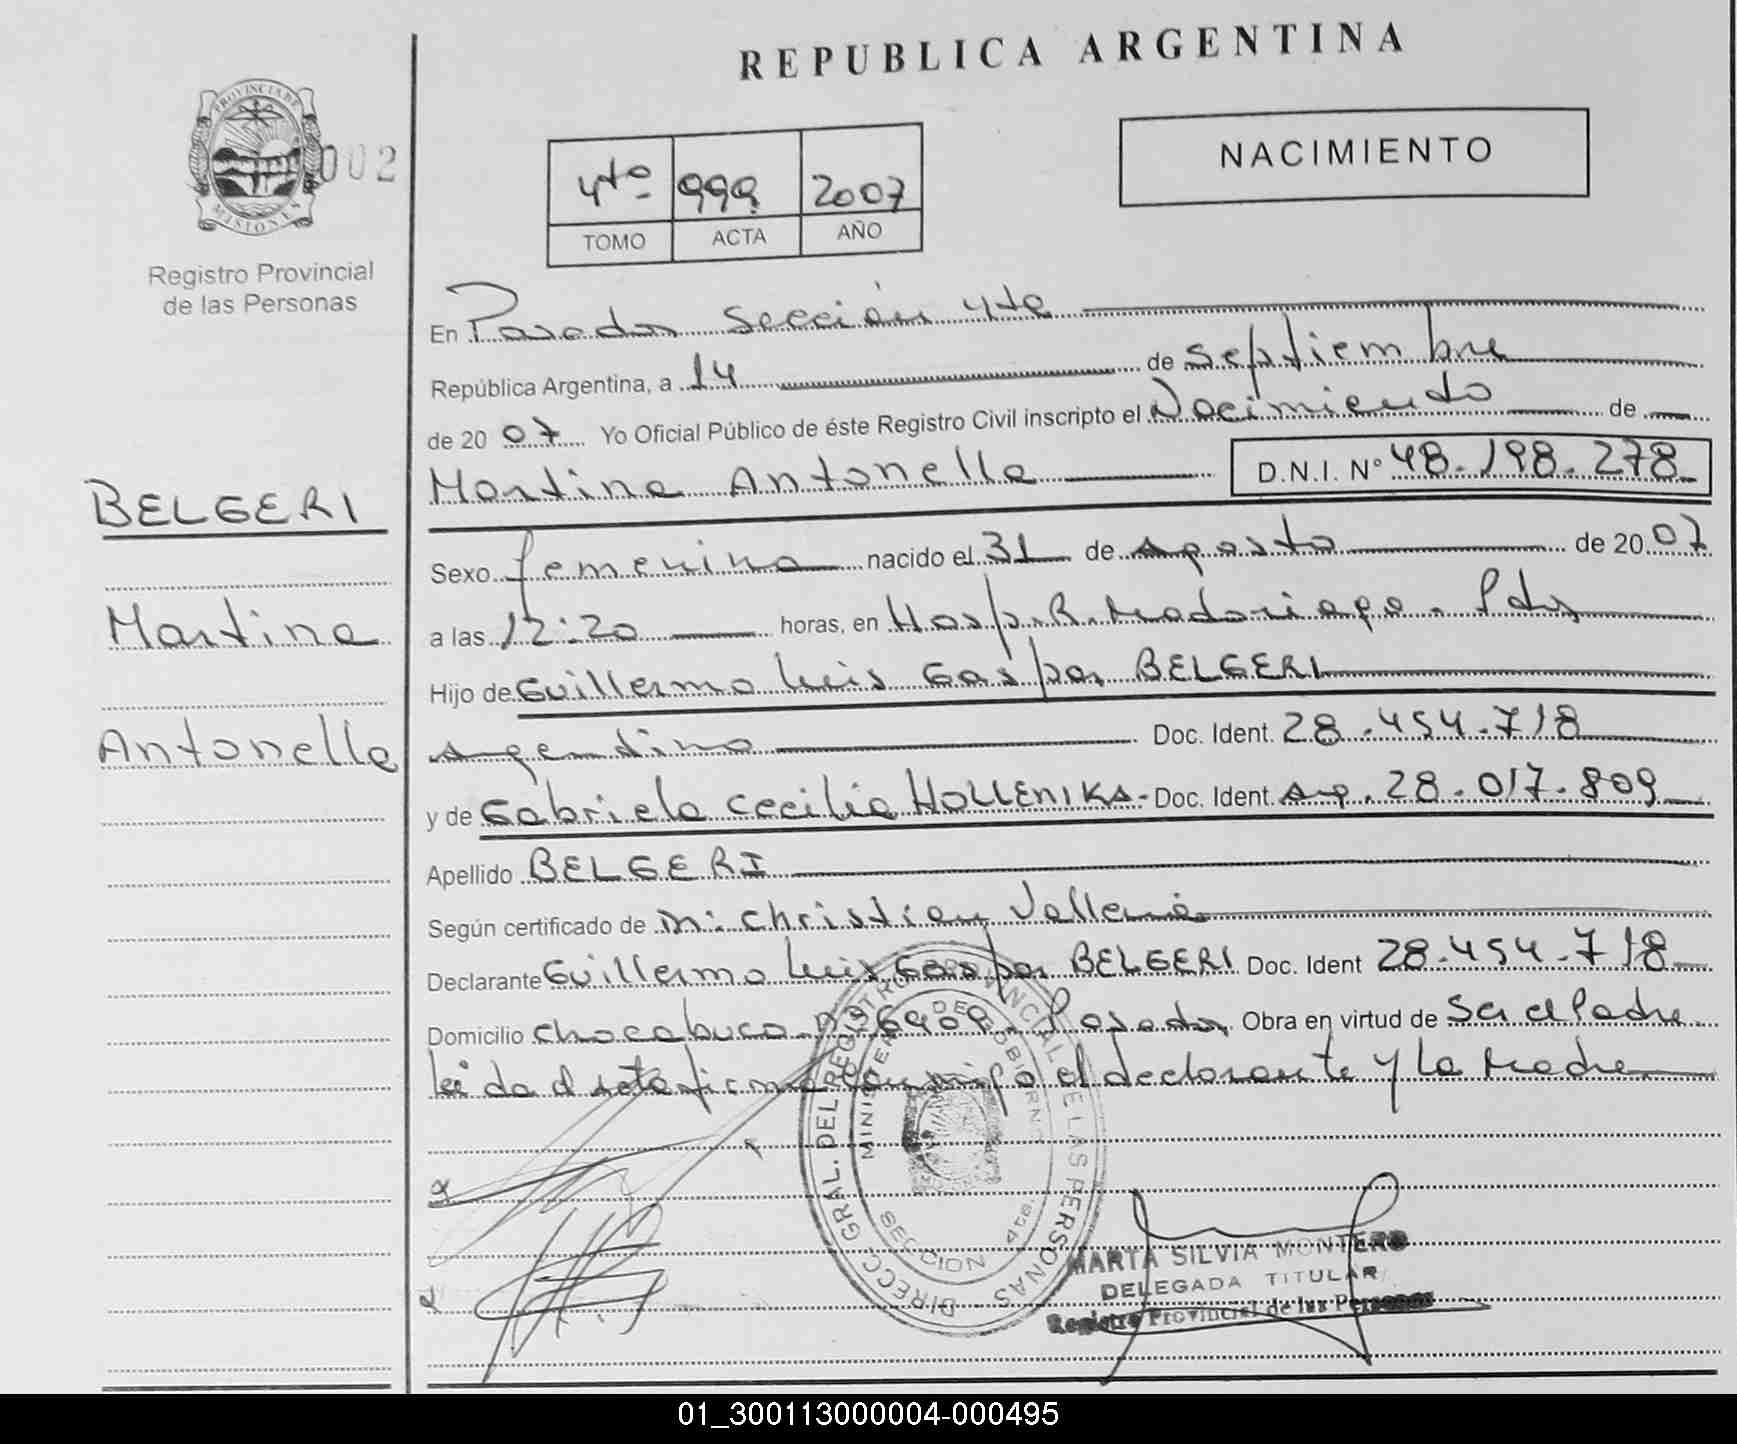 REPUBLICA ARGENTINA
PROVINCIA DE
MISIONES
002
Registro Provincial
de las Personas
4to 999 2007
TOMO ACTA AÑO
NACIMIENTO
En Posadas Sección 4ta
República Argentina, a 14 de Septiembre
de 2007 Yo Oficial Público de éste Registro Civil inscripto el Nacimiento de
Martina Antonella D.N.I. N° 48.198.278
BELGERI
Martina
Antonella
Sexo femenino nacido el 31 de Agosto de 2007
a las 12:20 horas, en Hosp. R. Madariaga. Pdas
Hijo de Guillermo Luis Gaspar BELGERI
Argentino Doc. Ident. 28.454.718
y de Gabriela Cecilia HOLLENIKA - Doc. Ident. Arg. 28.017.809
Apellido BELGERI
Según certificado de m: Christian
Declarante Guillermo Luis Gaspar BELGERI Doc. Ident 28.454.718
Domicilio Chacabuco n° Posadas Obra en virtud de Ser el Padre
Leida el acta firman conmigo el declarante y La Madre
DIRECC. GRAL. DEL REGISTRO PROVINCIAL DE LAS PERSONAS
MINISTERIO DE GOBIERNO
MISIONES
SECCION 4ta.
MARTA SILVIA MONTERO
DELEGADA TITULAR
Registro Provincial de las Personas
01_300113000004-000495